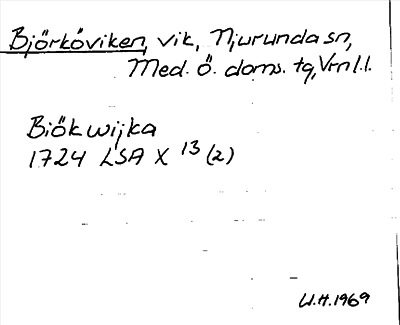 Björköviken, vik, Njurunda sn,
Med. ö. doms. tg, Vrnl.l.
Biökwijka
1724 LSA X 13 (2)
U.H. 1969